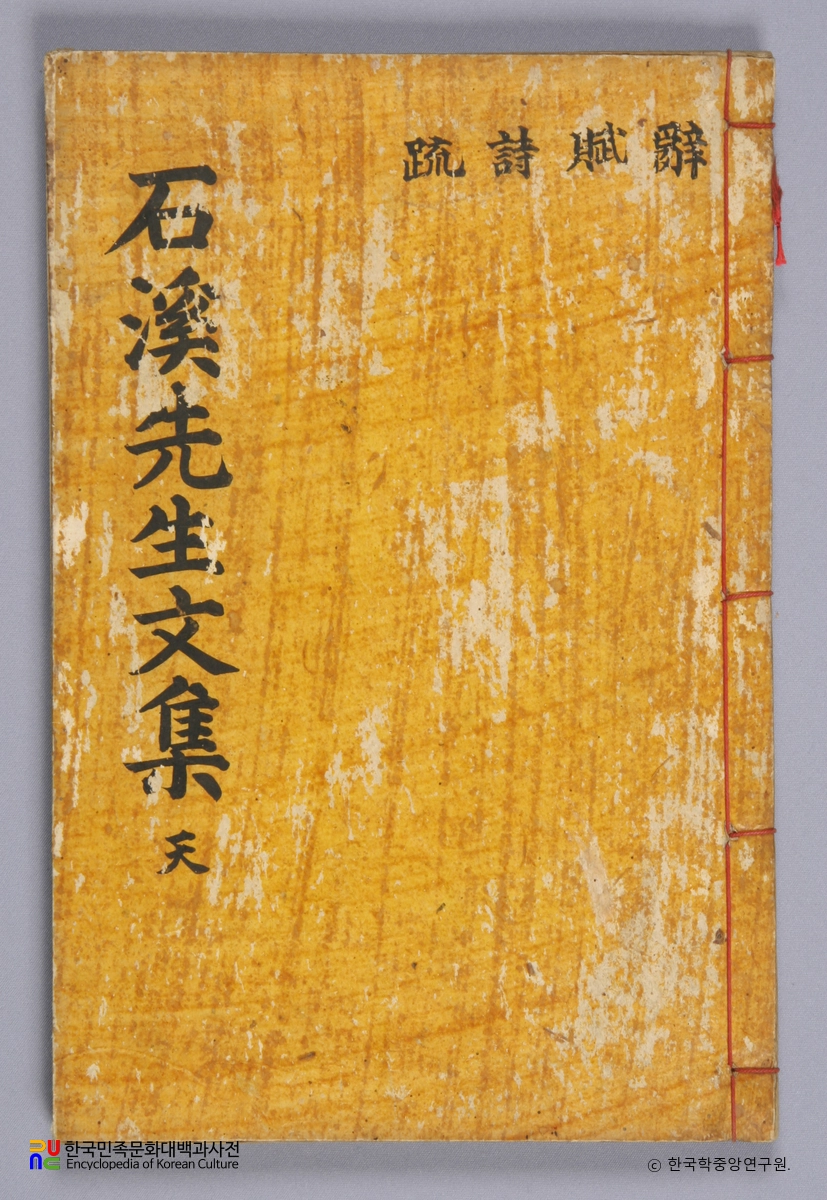 辭 賦 詩 疏
石溪先生文集 天
한국민족문화대백과사전
Encyclopedia of Korean Culture
ⓒ 한국학중앙연구원.